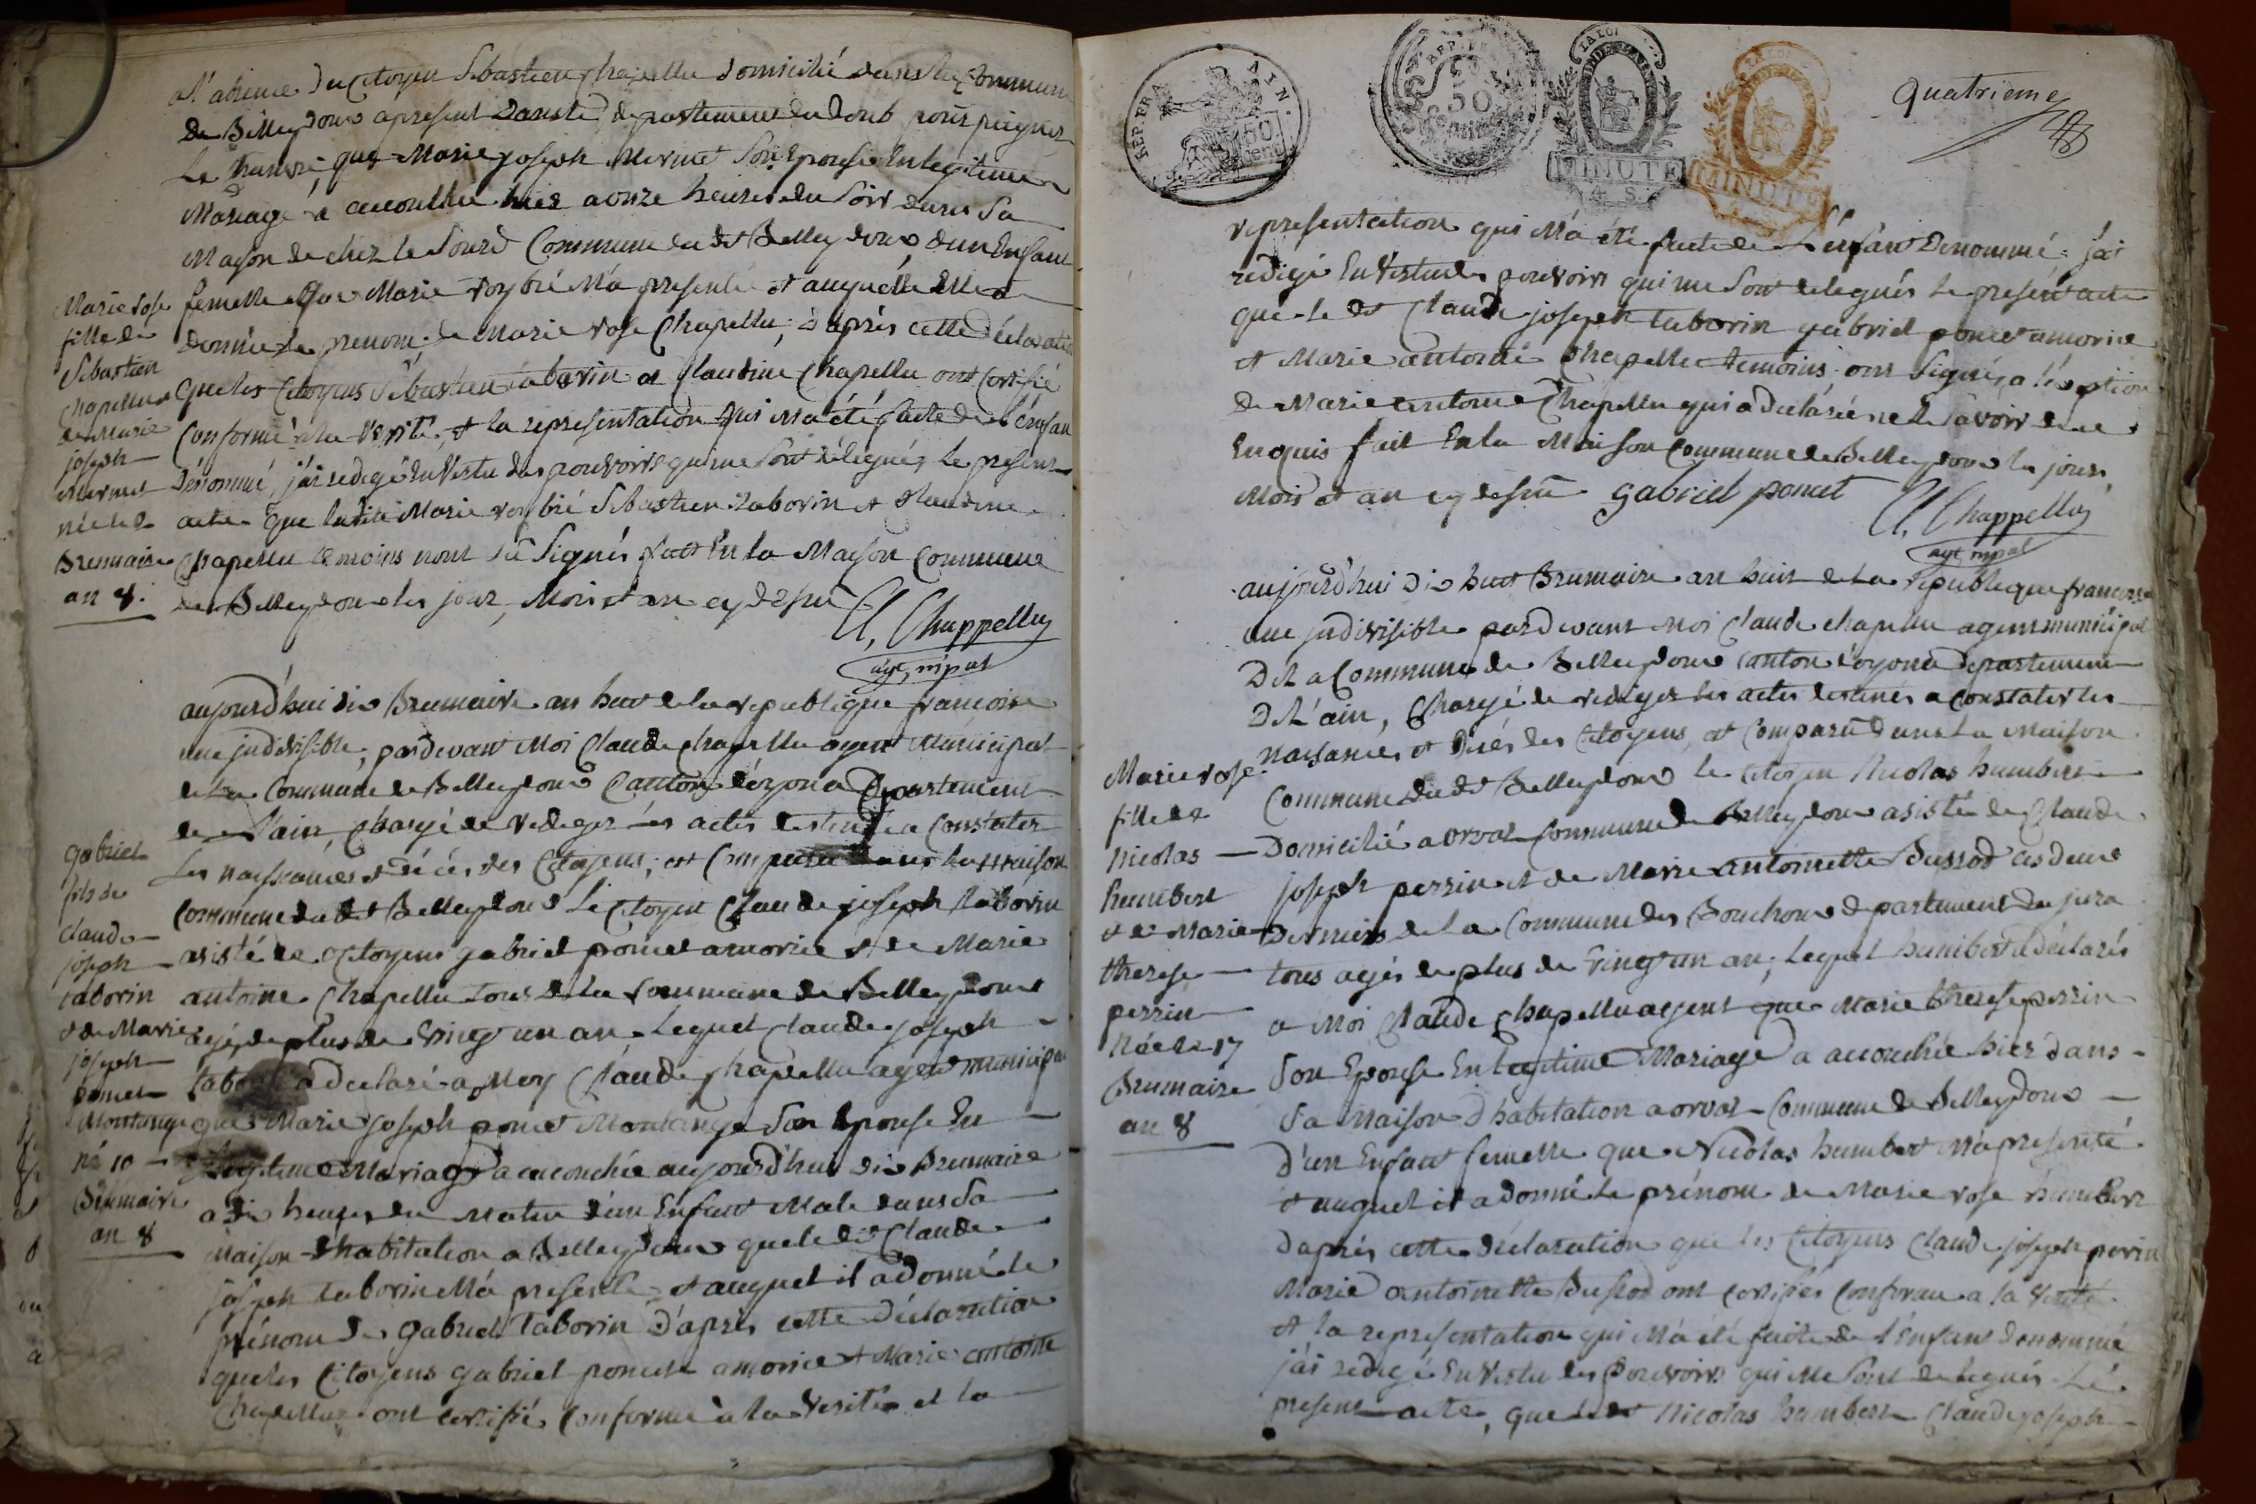 a l'absence du Citoyen Sébastien Chapellu domicilié dans la Commune
de Belleydoux apresent dans le departement du Doub pour peigner
le chanvre, que Marie joseph Mermet Son Epouse En legitime
Mariage a accouchée hier a onze heures du Soir dans Sa
Maison de chez le Sourd Commune du dt Belleydoux, d'un Enfant
femelle que Marie roybié M'a presenté et auquelle Elle a
donnée le prenom de Marie rose Chapellu, d'après cette déclaration
que les Citoyens Sébastien taborin et Claudine Chapellu ont Certifié
Conforme a la Verité, et la representation qui M'a été faite de l'enfan
dénommé, j'ai redigé En Vertu des pouvoirs qui me Sont délégués le present
acte que ladite Marie roybié Sébastien taborin et Claudine
Chapellu temoins n'ont Su Signés fait En la Maison Commune
de Belleydoux les jour, Mois et an cy desсu
Cl, Chappelluz
agt, mpal
Marie rose
fille de
Sébastien
Chapellu et
de Marie
joseph
mermet
née le 9
Brumaire
an 8.
aujourd'hui dix Brumaire an huit de la republique françoise
une indivisible, pardevant Moi Claude Chapellu agent Municipal
de la Commune de Belleydoux Canton d'oyona Departement
de l'ain, Chargé de rediger les actes destinés a Constater
les naissances et décès des Citoyens, est Comparu dans la Maison
Commune du dt Belleydoux le Citoyen Claude joseph taborin
asisté de Citoyens gabriel poncet amorice et de Marie
antoine Chapellu tous de la Commune de Belleydoux
agé de plus de Vingt un an, Lequel Claude joseph
taborin a declaré a Moy Claude Chapellu agent municipal
que Marie joseph poncet Montange Son Epouse En
legitime Mariage a accouchée aujourd'hui dix Brumaire
a dix heures du Matin d'un Enfant Male dans Sa
Maison d'habitation a Belleydoux que le dt Claude
joseph taborin M'a presenté, et auquel il a donné le
prénom de gabriel taborin d'après cette Déclaration
que les Citoyens gabriel poncet amorice et Marie antoine
Chapelluz ont certifié Conforme à la Verité et la
gabriel
fils de
claude
joseph
taborin
et de Marie
joseph
poncet
Montange
né 10
Brumaire
an 8
REP. FRA
AIN.
50
cent.
REP. FRA
50
LA LOI
MINUTE
4 S.
LA LOI
MINUTE
Quatrieme
representation qui M'a été faite de L'enfant Denommé, j'ai
redigé En Vertu des pouvoirs qui me Sont delegués le present acte
que le dt Claude joseph taborin gabriel poncet amorice
et Marie antoine Chapellu temoins ont Signés, a l'exeption
de Marie antoine Chapellu qui a declaré ne le Savoir de ce
Enquis fait En la Maison Commune de Belleydoux les jour,
Mois et an cy desсu gabriel poncet
Cl, Chappelluz
agt, mpal
aujourd'hui Dix huit Brumaire an huit de la république françoise
une indivisible pardevant Moi Claude chapellu agent municipal
De la Commune de Belleydoux Canton d'oyona Departement
De l'ain, Chargé de rediger les actes destinés a Constater les
naissances et décès des Citoyens, est Comparu dans La Maison
Commune du dt Belleydoux le Citoyen Nicolas humbert
Domicilié a orvaz Commune de Belleydoux asistée de Claude
joseph perrin et de Marie antoinette Bussod ces deux
Derniers de la Commune des Bouchoux departement du jura
tous agés de plus de Vingt un an, Lequel humbert a déclarés
a Moi Claude Chapellu agent que Marie therese perrin
Son Epouse En Legitime Mariage a accouchée hier dans
Sa Maison d'habitation a orvaz Commune de Belleydoux
d'un Enfant femelle que Nicolas humbert M'a presenté
et auquel il a donné le prénom de Marie rose humbert
d'après cette déclaration que les Citoyens Claude joseph perrin
Marie antoinette Bussod ont certifiés Conforme a la Verité
et la representation qui M'a été faite de l'Enfant denommé
j'ai redigé En Vertu des Pouvoirs qui Me Sont delegués Le
present acte, que le dt Nicolas humbert Claude joseph
Marie rose
fille de
Nicolas
humbert
et de Marie
therese
perrin
Née le 17
Brumaire
an 8